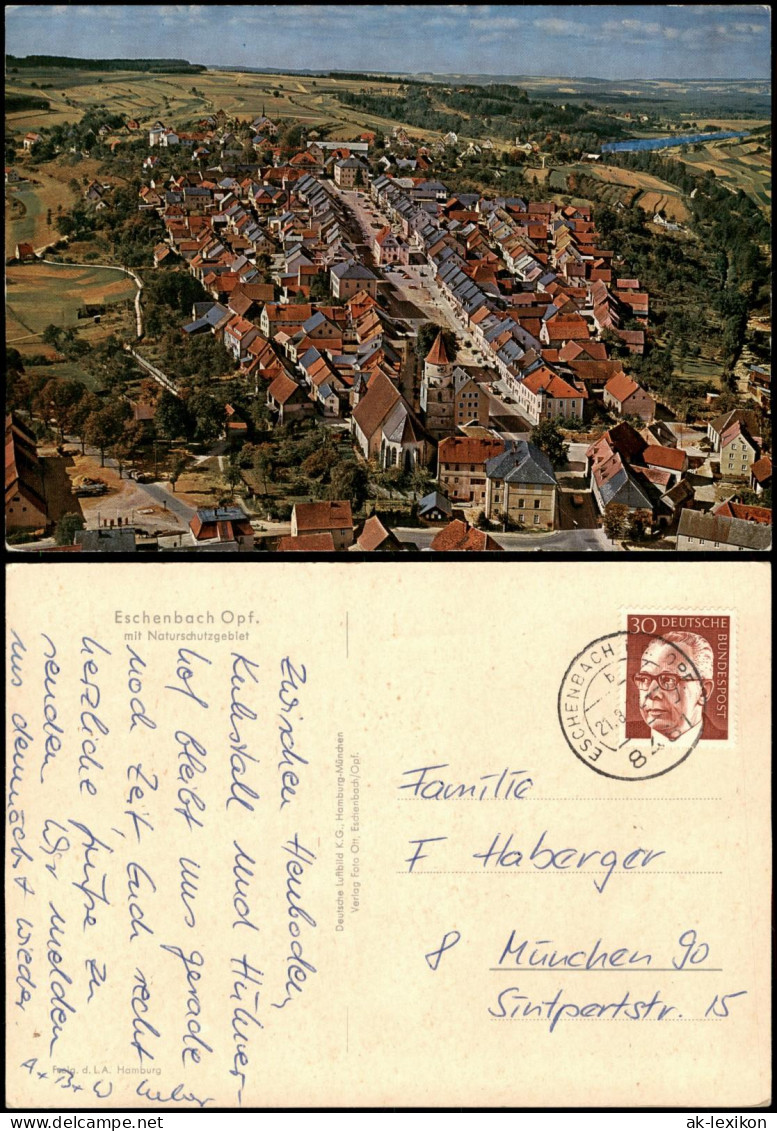 Eschenbach Opf.
mit Naturschutzgebiet
Zwischen Heuboden,
Kuhstall und Hühner-
hof bleibt uns gerade
noch Zeit, Euch recht
herzliche Grüße zu
senden. Wir melden
uns demnächst wieder.
Freig. d. L.A. Hamburg
Deutsche Luftbild K.G., Hamburg-München
Verlag Foto Ott, Eschenbach/Opf.
30 DEUTSCHE
BUNDESPOST
ESCHENBACH
21.8
Familie
F Haberger
8 München 90
Sintpertstr. 15
www.ansichtskarten-lexikon.de
ak-lexikon